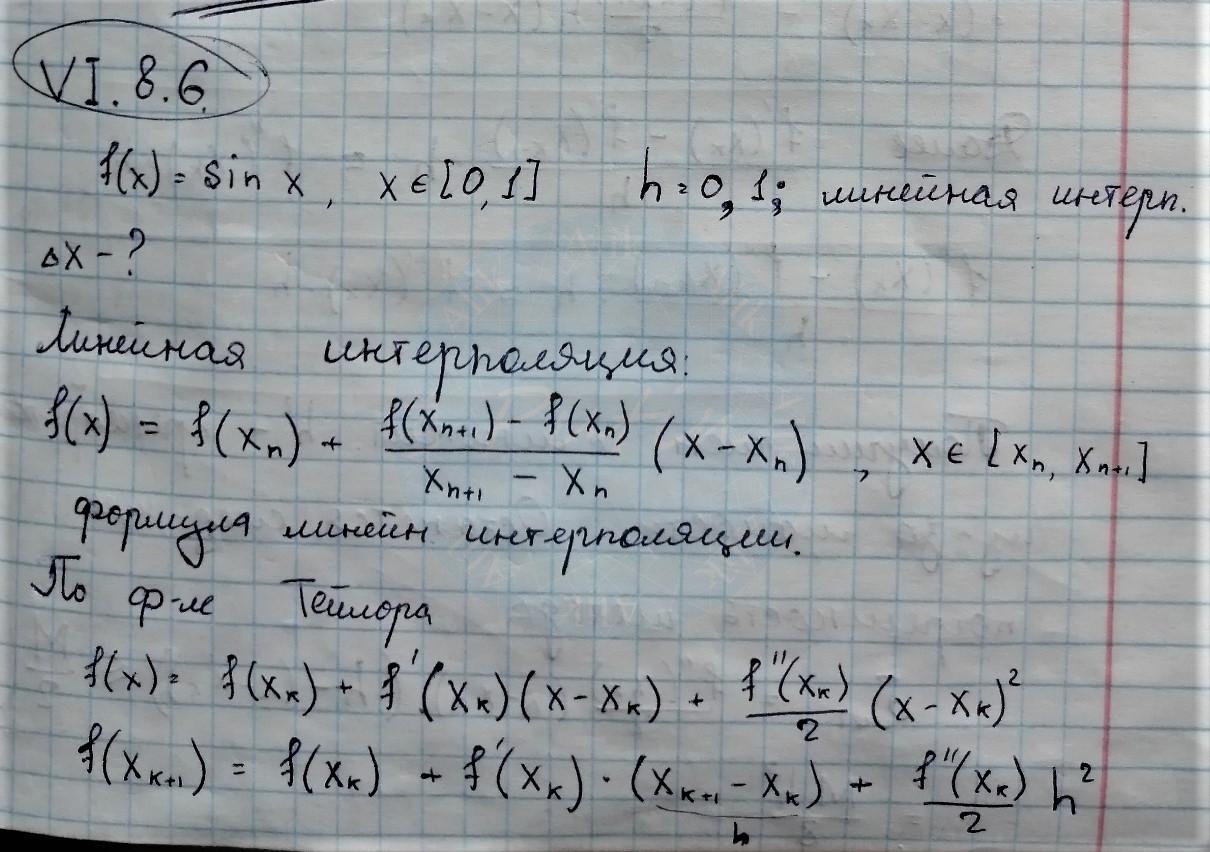 VI.8.6.
f(x) = sin x, x ∈ [0,1] h = 0,1; линейная интерп.
Δx - ?
Линейная интерполяция:
f(x) = f(xₙ) + (f(xₙ₊₁) - f(xₙ))/(xₙ₊₁ - xₙ) (x - xₙ), x ∈ [xₙ, xₙ₊₁]
формула линейн интерполяции.
По ф-ле Тейлора
f(x) = f(xₖ) + f'(xₖ)(x - xₖ) + f''(xₖ)/2 (x - xₖ)²
f(xₖ₊₁) = f(xₖ) + f'(xₖ) · (xₖ₊₁ - xₖ) + f''(xₖ)/2 h²
h